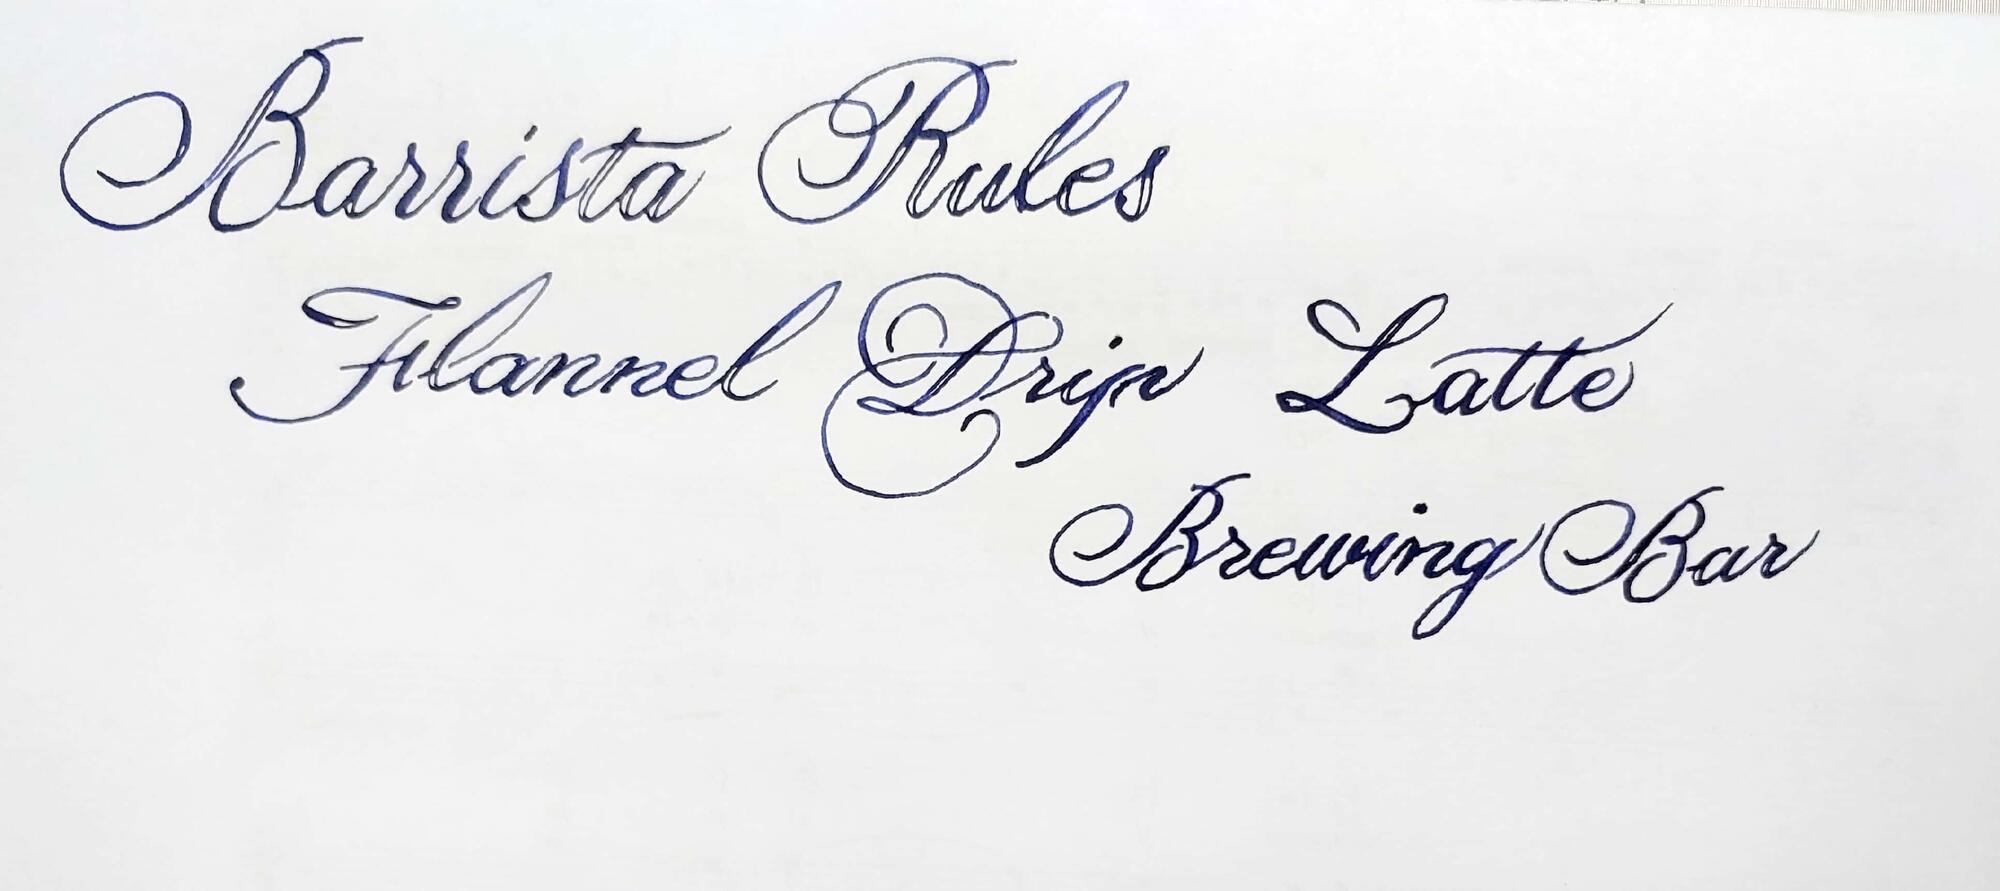 Barrista Rules
Flannel Drip Latte
Brewing Bar